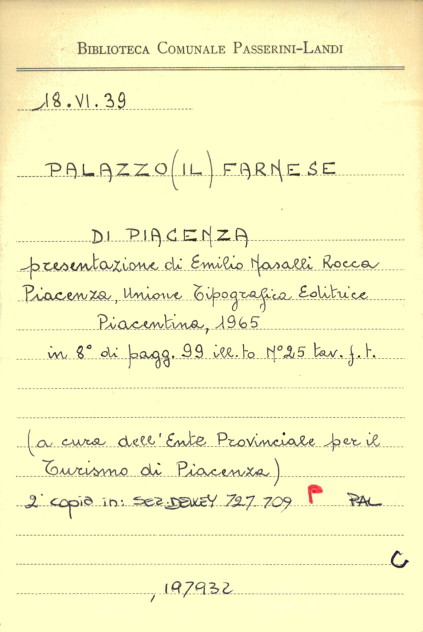 BIBLIOTECA COMUNALE PASSERINI-LANDI
18.VI.39
PALAZZO (IL) FARNESE
DI PIACENZA
presentazione di Emilio Nasalli Rocca
Piacenza, Unione Tipografica Editrice
Piacentina, 1965
in 8° di pagg. 99 ill.to N°25 tav. f.t.
(a cura dell'Ente Provinciale per il
Turismo di Piacenza)
2ª copia in: Sez. DEWEY 727 709 P PAL
C
197932